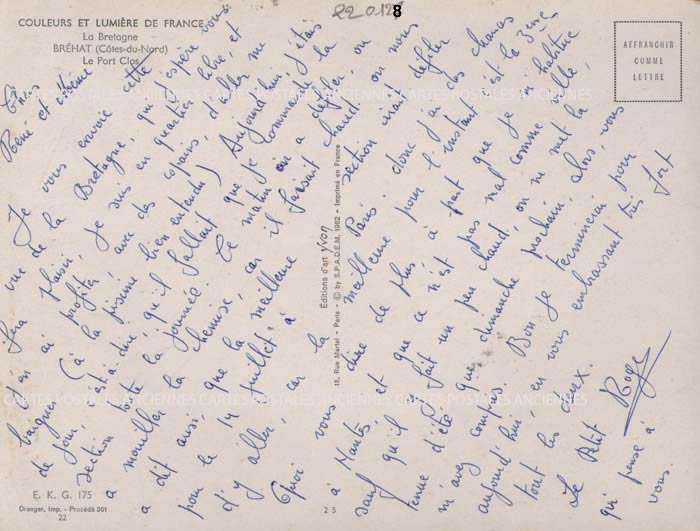 220128
COULEURS ET LUMIÈRE DE FRANCE
La Bretagne
BRÉHAT (Côtes-du-Nord)
Le Port Clos
AFFRANCHIR
COMME
LETTRE
Chers
René et
Je vous envoie cette
vue de la Bretagne, qui j'espère vous
fera plaisir, je suis en quartier libre, et
j'en ai profité avec des copains, d'aller me
baigner (à la piscine bien entendu) Aujourd'hui, j'étais
de jour, c'est-à-dire, qu'il fallait que je commande la
section toute la journée. Ce matin on a défilé, on
a mouillé la chemise, car il faisait chaud. on nous
a dit aussi, que la meilleure section irait défiler
pour le 14 juillet, à Paris. donc j'ai des chances
d'y aller, car la meilleure pour l'instant c'est la 3ème
Quoi vous dire de plus, à part que je m'habitue
à Nantes et que ça n'est pas mal comme ville,
sauf qu'il y fait un peu chaud, on ne met la
tenue d'été que dimanche prochain, alors, vous
m'avez compris. Bon je terminerai pour
aujourd'hui en vous embrassant très fort
tout les deux.
Le Petit Roge
qui pense à
vous.
Editions d'art yvon
15, Rue Martel - Paris - © by S.P.A.D.E.M. 1962 - Imprimé en France
CARTES POSTALES ANCIENNES CARTES POSTALES ANCIENNES
E. K. G. 175
Draeger, Imp. - Procédé 301
22
25